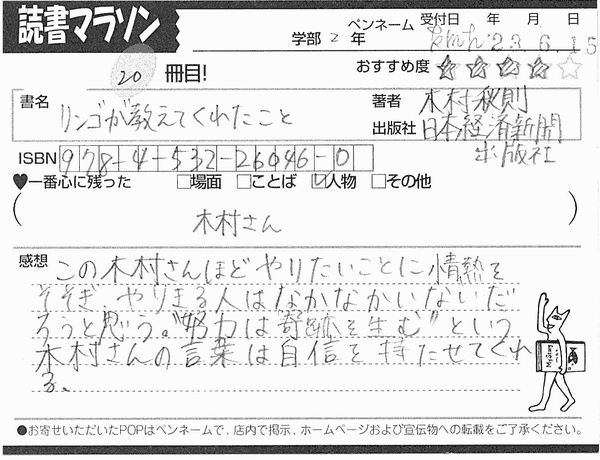 読書マラソン
ペンネーム 受付日 年 月 日
学部 2 年 23.6.15
20 冊目!
おすすめ度 ★★★★☆
書名 リンゴが教えてくれたこと
著者 木村秋則
出版社 日本経済新聞
出版社
ISBN 978-4-532-26046-0
♥一番心に残った □場面 □ことば ☑人物 □その他
( 木村さん )
感想 この木村さんほどやりたいことに情熱を
そそぎ、やりきる人はなかなかいないだ
ろうと思う。"努力は奇跡を生む"という
木村さんの言葉は自信を持たせてくれ
る。
●お寄せいただいたPOPはペンネームで、店内で掲示、ホームページおよび宣伝物への転載をご了承ください。